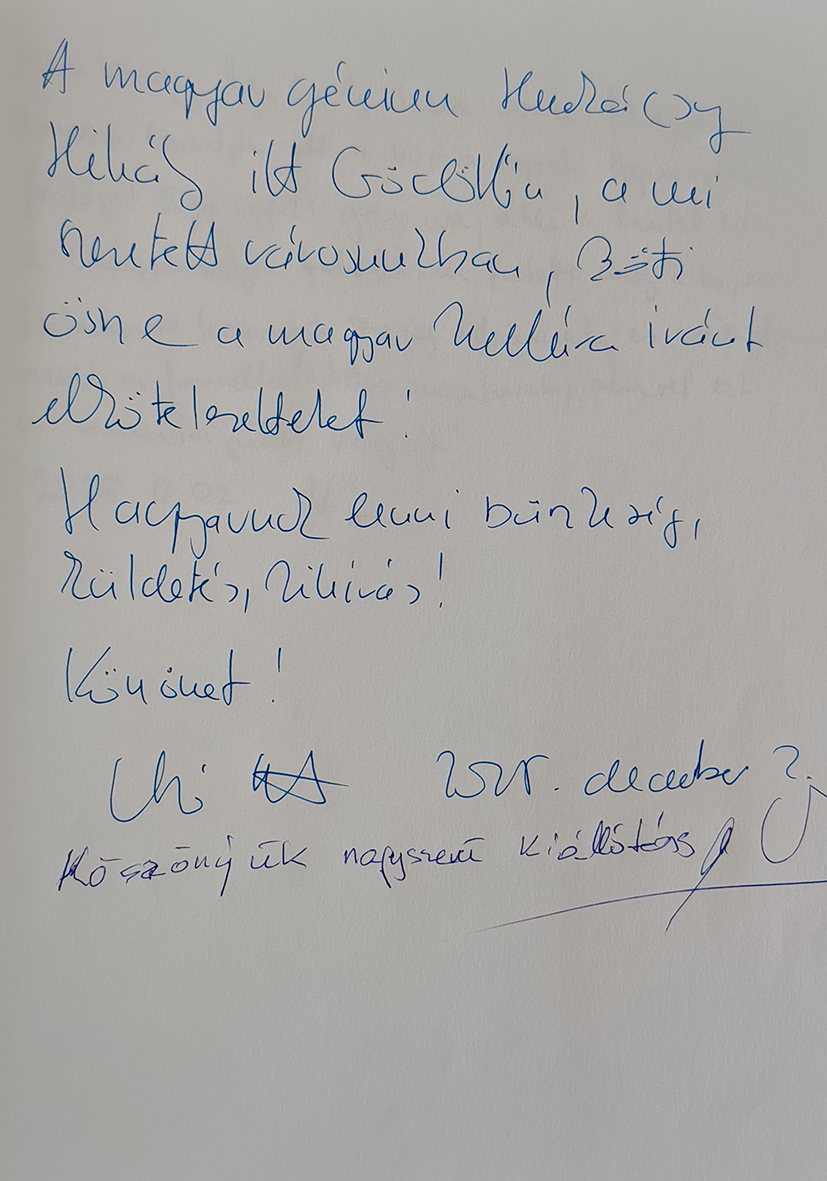 A magyar géniusz Munkácsy
Mihály itt Gödöllőn, a mi
szeretett városunkban, köti
össze a magyar kultúra iránt
elkötelezetteket!
Magyarnak lenni büszkeség,
küldetés, kihívás!
Köszönet!
2025. december 2.
Köszönjük nagyszerű kiállítás